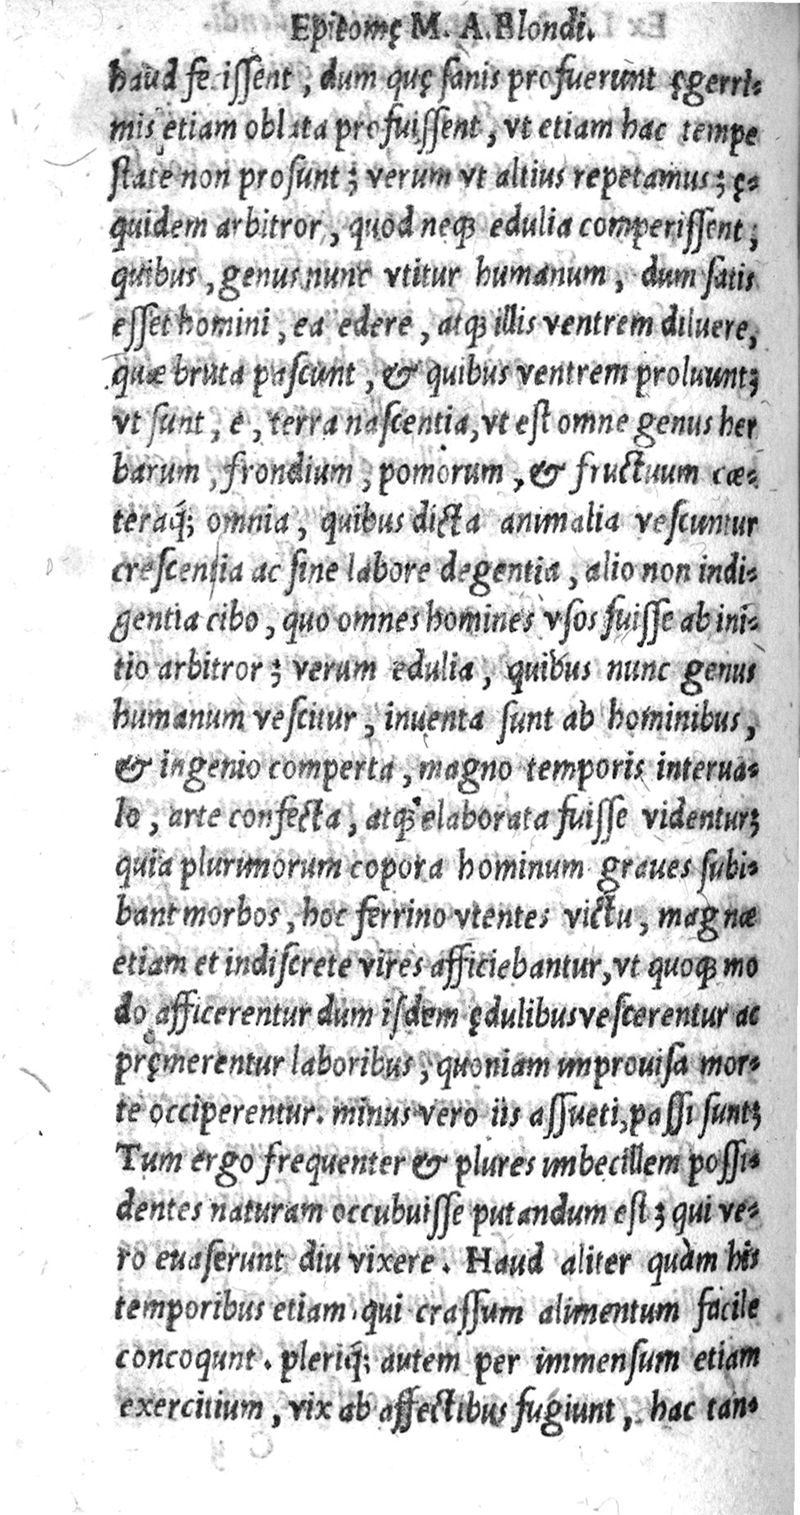 Epitomę M. A. Blondi.
haud fecissent, dum quę sanis profuerunt ęgerri⸗
mis etiam oblata profuissent, vt etiam hac tempe
state non prosunt; verum vt altius repetamus; ę⸗
quidem arbitror, quod neqꝫ edulia comperissent;
quibus, genus nunc vtitur humanum, dum satis
esset homini, ea edere, atqꝫ illis ventrem diluere,
quæ bruta pascunt, & quibus ventrem proluunt;
vt sunt, e, terra nascentia, vt est omne genus her
barum, frondium, pomorum, & fructuum cæ⸗
teraq́; omnia, quibus dicta animalia vescuntur
crescentia ac sine labore degentia, alio non indi⸗
gentia cibo, quo omnes homines vsos fuisse ab ini⸗
tio arbitror; verum edulia, quibus nunc genus
humanum vescitur, inuenta sunt ab hominibus,
& ingenio comperta, magno temporis interua⸗
lo, arte confecta, atqꝫ elaborata fuisse videntur;
quia plurimorum copora hominum graues subi⸗
bant morbos, hoc ferrino vtentes victu, magnæ
etiam et indiscrete vires afficiebantur, vt quoqꝫ mo
do afficerentur dum isdem ędulibus vescerentur ac
pręmerentur laboribus, quoniam improuisa mor⸗
te occiperentur. minus vero iis assueti, passi sunt;
Tum ergo frequenter & plures imbecillem possi⸗
dentes naturam occubuisse putandum est; qui ve⸗
ro euaserunt diu vixere. Haud aliter quàm his
temporibus etiam, qui crassum alimentum facile
concoqunt. pleriq́; autem per immensum etiam
exercitium, vix ab affectibus fugiunt, hac tan⸗